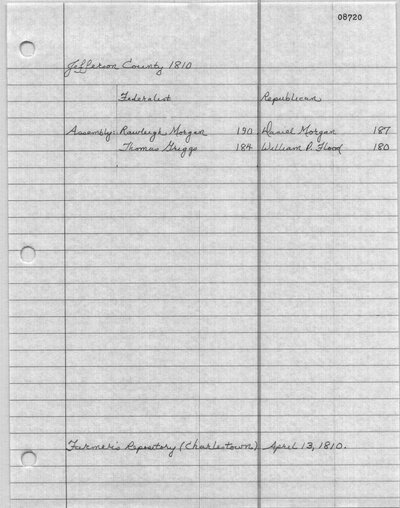 08720
Jefferson County 1810
Federalist Republican
Assembly: Rawleigh Morgan 190 Daniel Morgan 187
Thomas Griggs 184 William P. Flood 180
Farmer's Repository (Charlestown) April 13, 1810.